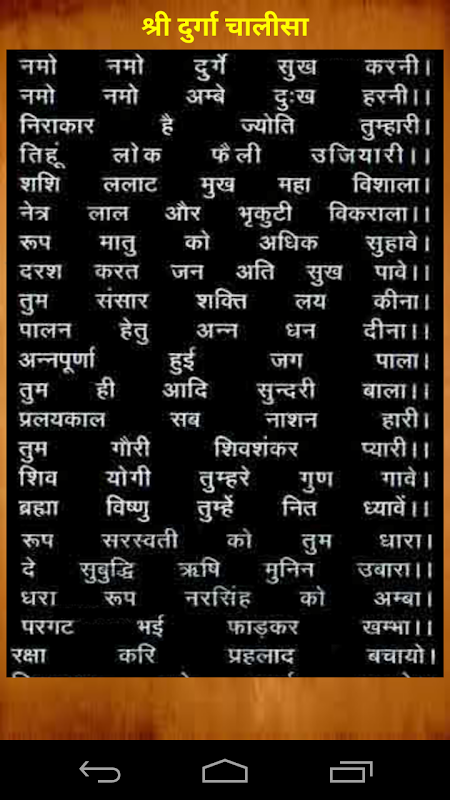 श्री दुर्गा चालीसा
नमो नमो दुर्गे सुख करनी।
नमो नमो अम्बे दुःख हरनी।।
निराकार है ज्योति तुम्हारी।
तिहूं लोक फैली उजियारी।।
शशि ललाट मुख महा विशाला।
नेत्र लाल और भृकुटी विकराला।।
रूप मातु को अधिक सुहावे।
दरश करत जन अति सुख पावे।।
तुम संसार शक्ति लय कीना।
पालन हेतु अन्न धन दीना।।
अन्नपूर्णा हुई जग पाला।
तुम ही आदि सुन्दरी बाला।।
प्रलयकाल सब नाशन हारी।
तुम गौरी शिवशंकर प्यारी।।
शिव योगी तुम्हरे गुण गावे।
ब्रह्मा विष्णु तुम्हें नित ध्यावें।।
रूप सरस्वती को तुम धारा।
दे सुबुद्धि ऋषि मुनिन उबारा।।
धरा रूप नरसिंह को अम्बा।
परगट भई फाड़कर खम्भा।।
रक्षा करि प्रहलाद बचायो।